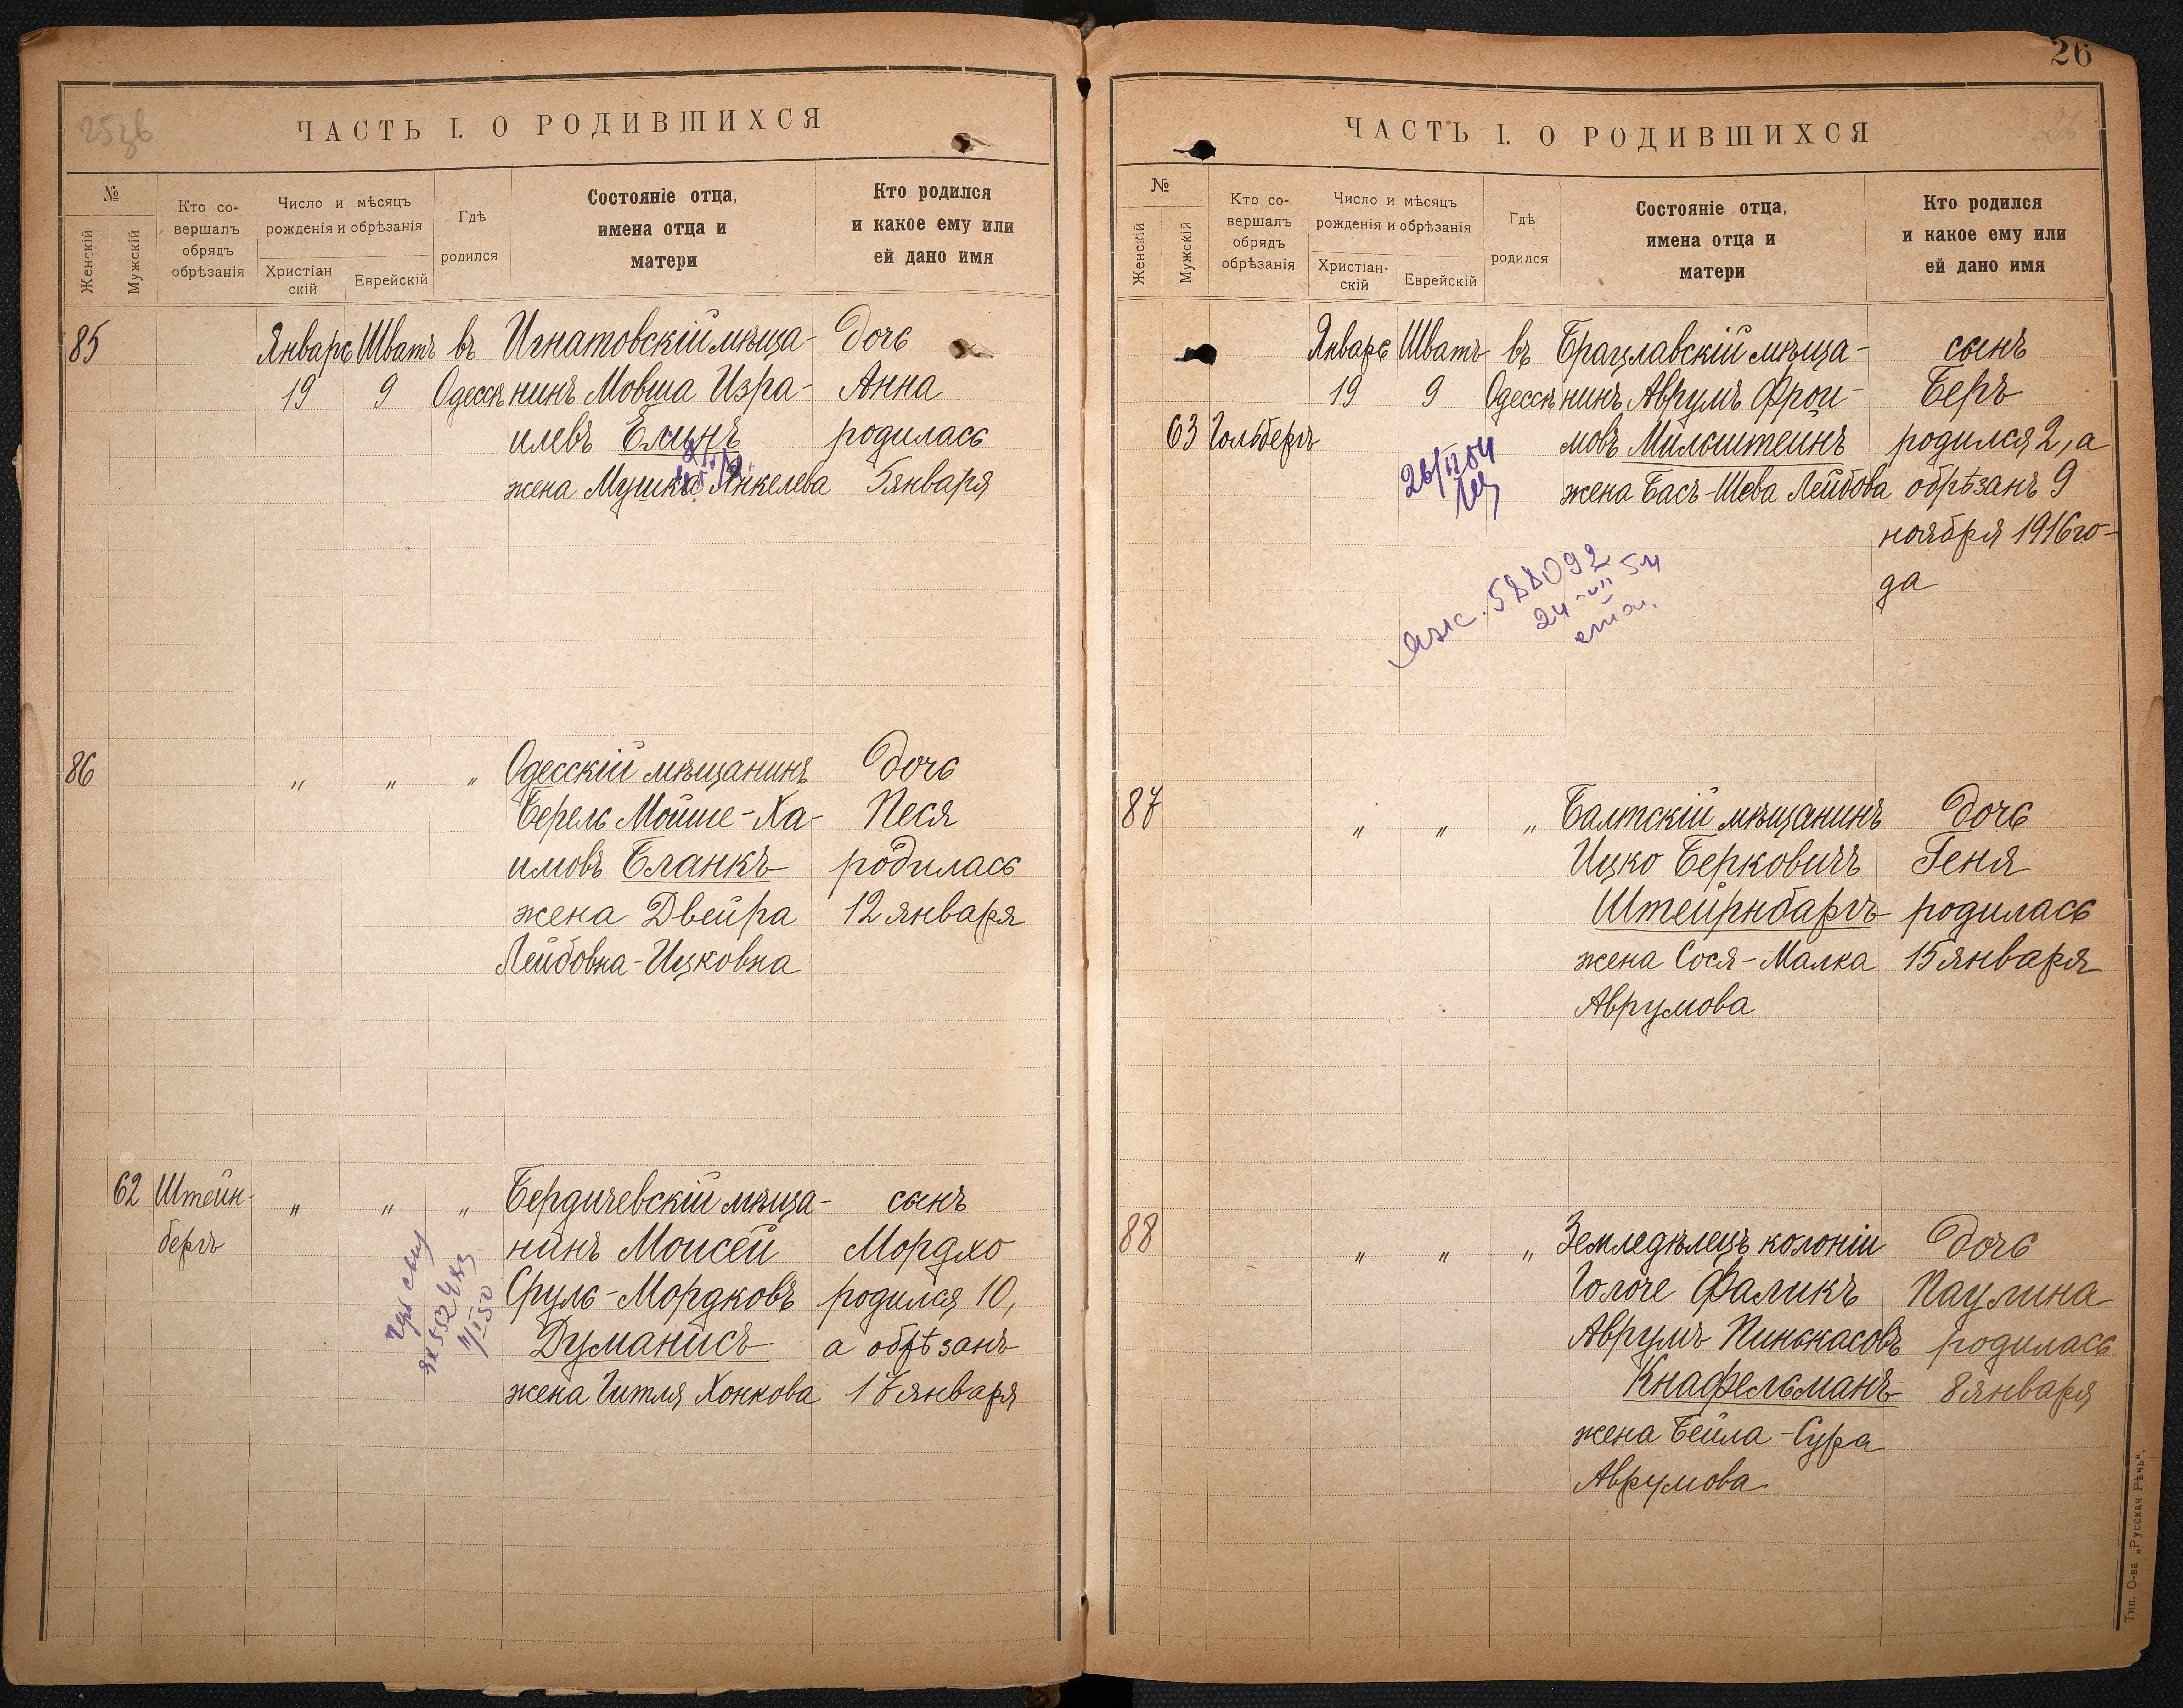 ЧАСТЬ I. О РОДИВШИХСЯ
№
Женскій
Мужскій
Кто со-
вершалъ
обрядъ
обрѣзанія
Число и мѣсяцъ
рожденія и обрѣзанія
Христіан
скій
Еврейскій
Гдѣ
родился
Состояніе отца,
имена отца и
матери
Кто родился
и какое ему или
ей дано имя
85 Январь Шватъ въ Игнатовскій мѣща- дочь
19 9 Одессѣ нинъ Мовша Изра- Анна
илевъ Елинъ родилась
жена Мушка Янкелева 5 января
86 „ „ „ Одесскій мѣщанинъ дочь
Берель Мойше-Ха- Песя
имовъ Бланкъ родилась
жена Двейра 12 января
Лейбовна-Ицковна
62 Штейн- „ „ „ Бердичевскій мѣща- сынъ
бергъ нинъ Моисей Мордхо
Сруль-Мордковъ родился 10,
Думанисъ а обрѣзанъ
жена Гитля Хонкова 17 января
26
ЧАСТЬ I. О РОДИВШИХСЯ
№
Женскій
Мужскій
Кто со-
вершалъ
обрядъ
обрѣзанія
Число и мѣсяцъ
рожденія и обрѣзанія
Христіан-
скій
Еврейскій
Гдѣ
родился
Состояніе отца,
имена отца и
матери
Кто родился
и какое ему или
ей дано имя
Январь Шватъ въ Брацлавскій мѣща- сынъ
19 9 Одессѣ нинъ Аврумъ Фрои- Беръ
63 Гольбергъ мовъ Милштейнъ родился 2, а
жена Бась-Шева Лейбова обрѣзанъ 9
ноября 1916 го-
да
588092
24 VII 54
87 „ „ „ Балтскій мѣщанинъ дочь
Ицко Берковичъ Геня
Штейрнбаргъ родилась
жена Сося-Малка 15 января
Аврумова
88 „ „ „ Земледѣлецъ колоніи дочь
Голоче Фаликъ Паулина
Аврумъ Пинькасовъ родилась
Кнафельманъ 8 января
жена Бейла-Сура
Аврумова
Тип. О-ва „Русская Рѣчь“.